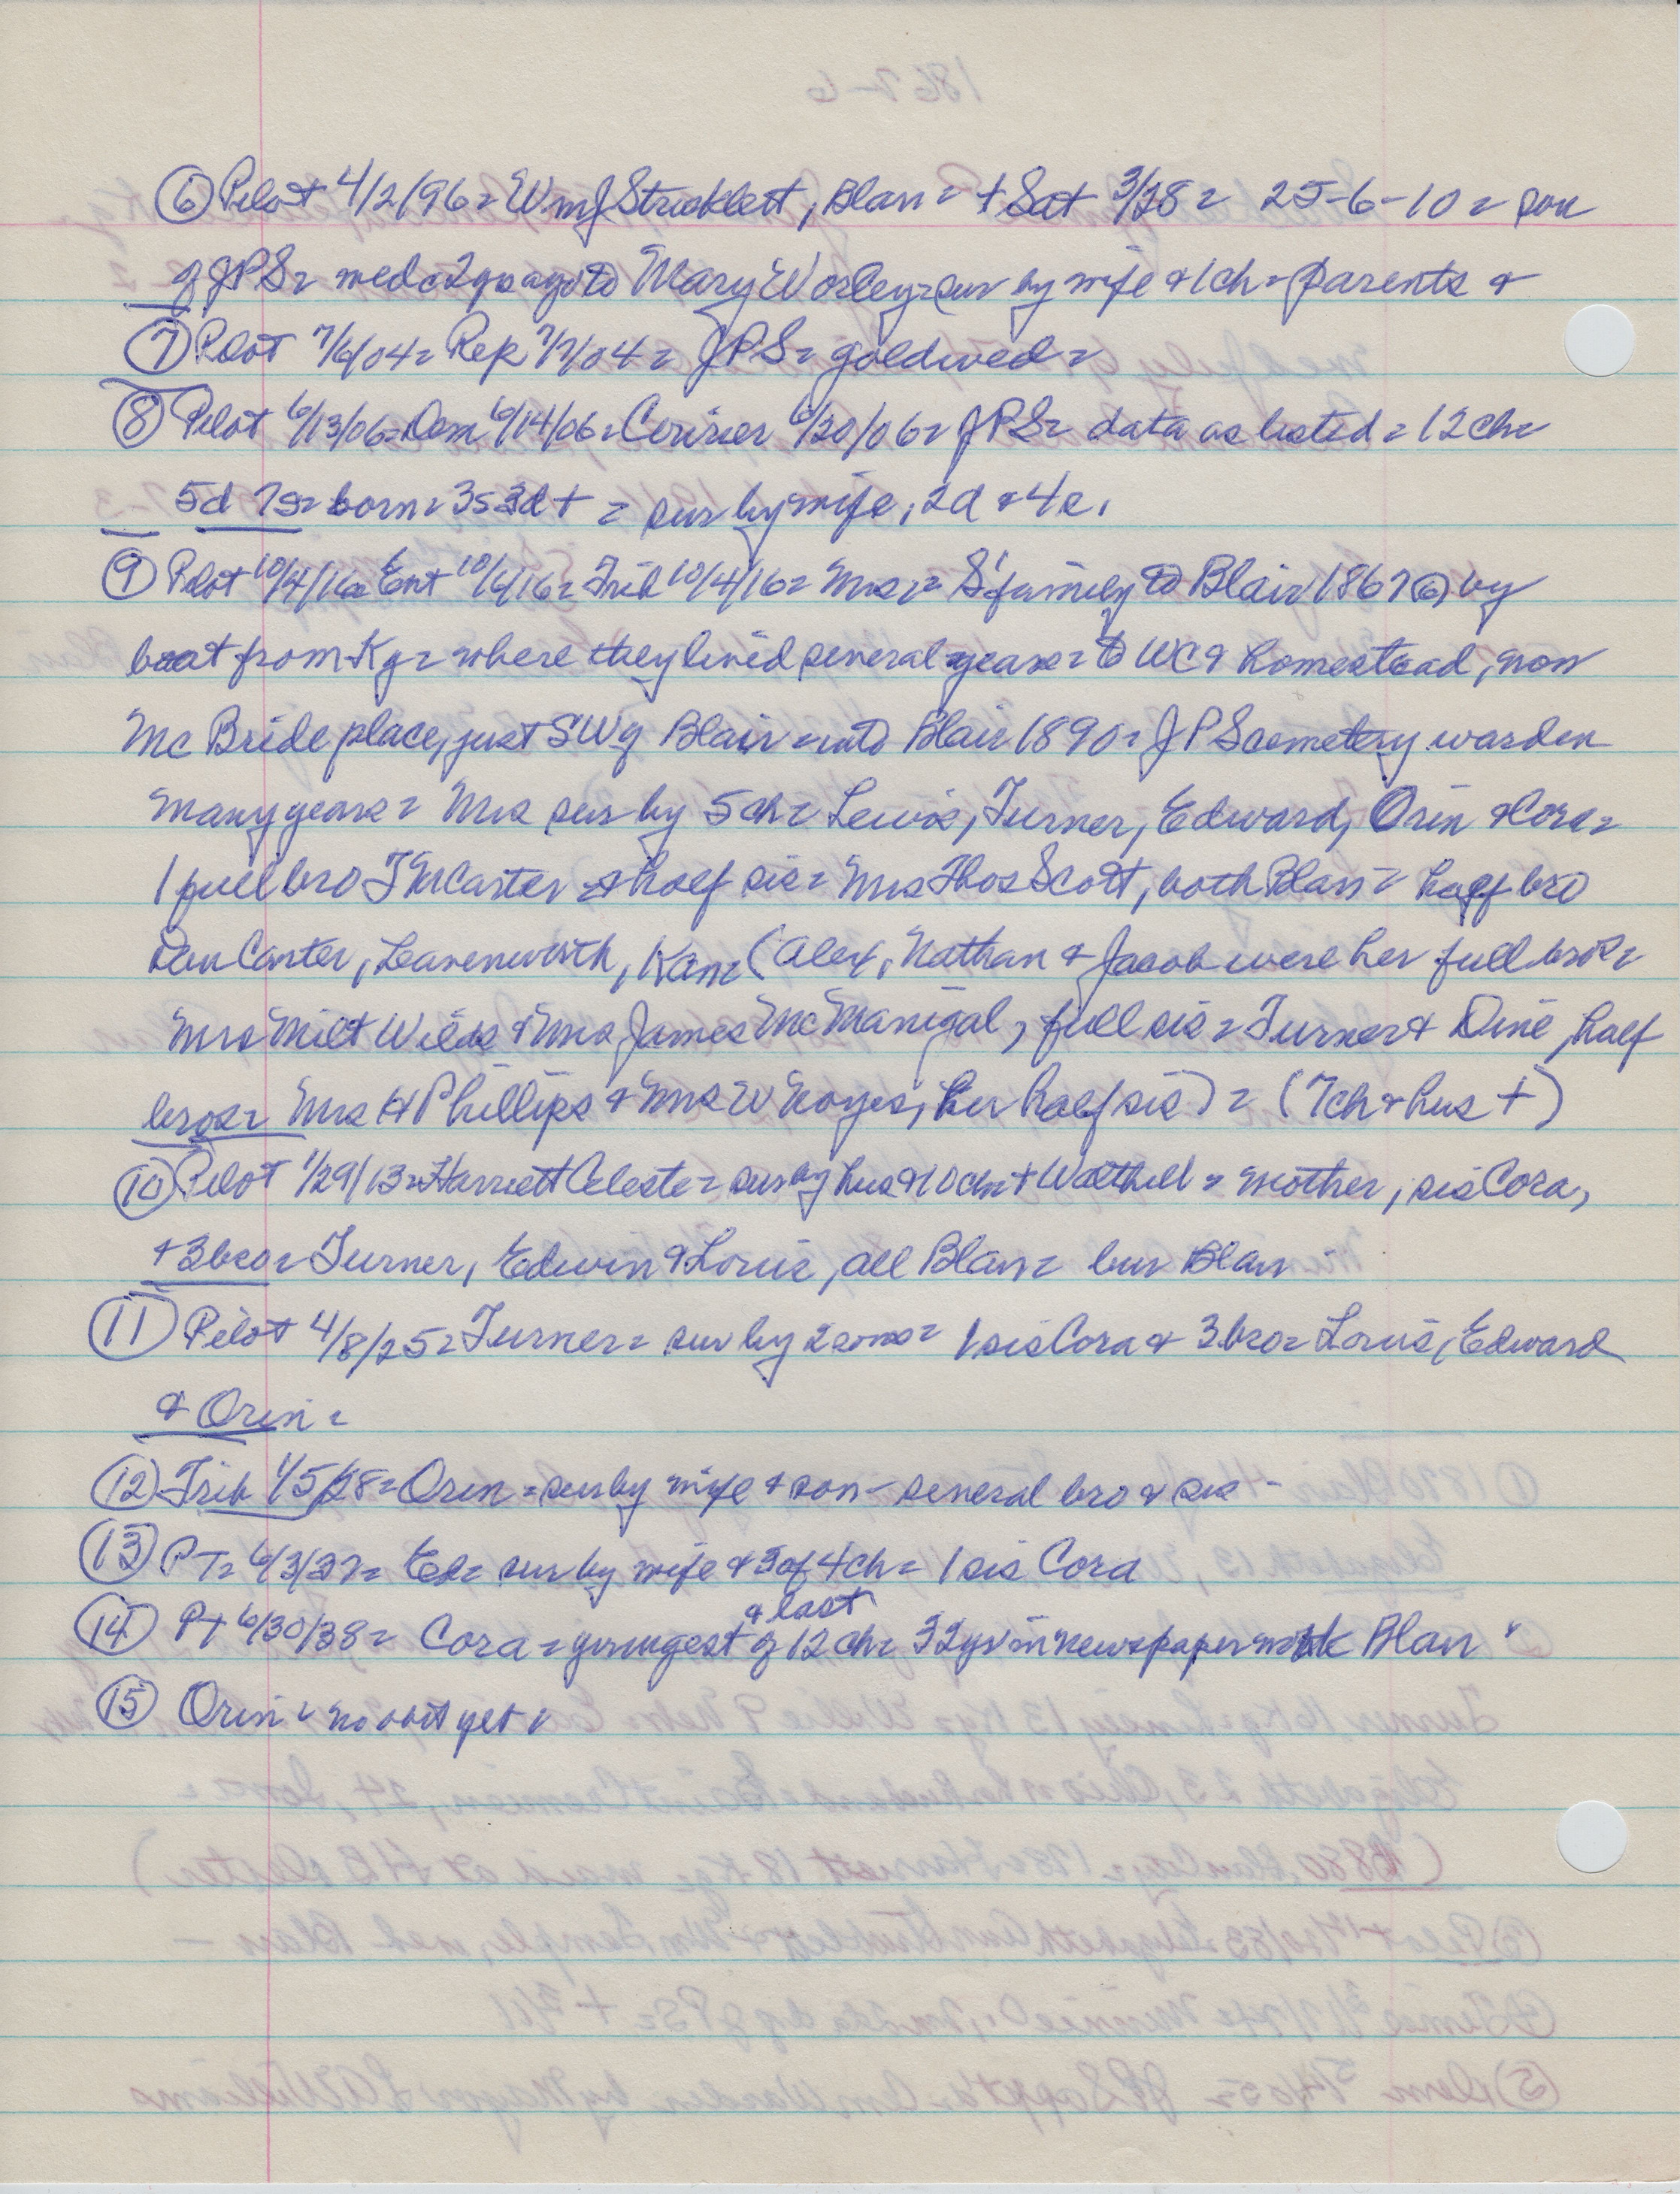 ⑥ Pilot 4/2/96 = Wm J Stricklett, Blair = + Sat 3/28 = 25-6-10 = son
of JPS = med c2ys ago to Mary Worley = sur by wife & 1ch = parents &
⑦ Pilot 7/6/04 = Rep 7/7/04 = JPS = gold wed =
⑧ Pilot 6/13/06 = Dem 6/14/06 = Courier 6/20/06 = JPS = data as listed = 12 ch =
5d 7s = born = 3s 3d + = sur by wife, 2d & 4s,
⑨ Pilot 10/4/16 = Ent 10/6/16 = Trib 10/4/16 = Mrs = S' family to Blair 1867 ⑥ by
boat from Ky = where they lived several years = to WC & homestead, now
McBride place, just SW of Blair = into Blair 1890 = JPS cemetery warden
many years = Mrs sur by 5 ch = Lewis, Turner, Edward, Orin & Cora =
1 full bro Carter & half sis = Mrs Thos Scott, both Blair = half bro
Dan Carter, Leavenworth, Kan = (Alex, Nathan & Jacob were her full bros =
Mrs Milt Wilds & Mrs James McManigal, full sis = Turner & Dine, half
bros = Mrs H Phillips & Mrs W Noyes, her half sis) = (7ch & hus +)
⑩ Pilot 1/29/13 = Harriett Celeste = sur by hus & 10 ch = + Walthill = mother, sis Cora,
+ 3 bro = Turner, Edwin & Louis, all Blair = bur Blair
⑪ Pilot 4/8/25 = Turner = sur by 2 sons = 1 sis Cora & 3 bro = Louis, Edward
& Orin =
⑫ Trib 1/5/28 = Orin = sur by wife & son - several bro & sis -
⑬ PT = 6/3/37 = Ed = sur by wife & 3 of 4 ch = 1 sis Cora
& last
⑭ PT 6/30/38 = Cora = youngest of 12 ch = 32 ys in newspaper work Blair
⑮ Orin = no obit yet =